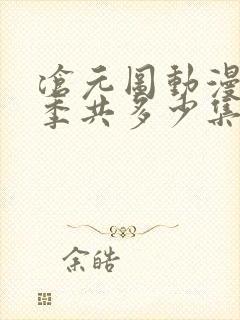 滄元圖動漫
季共多少集
余皓